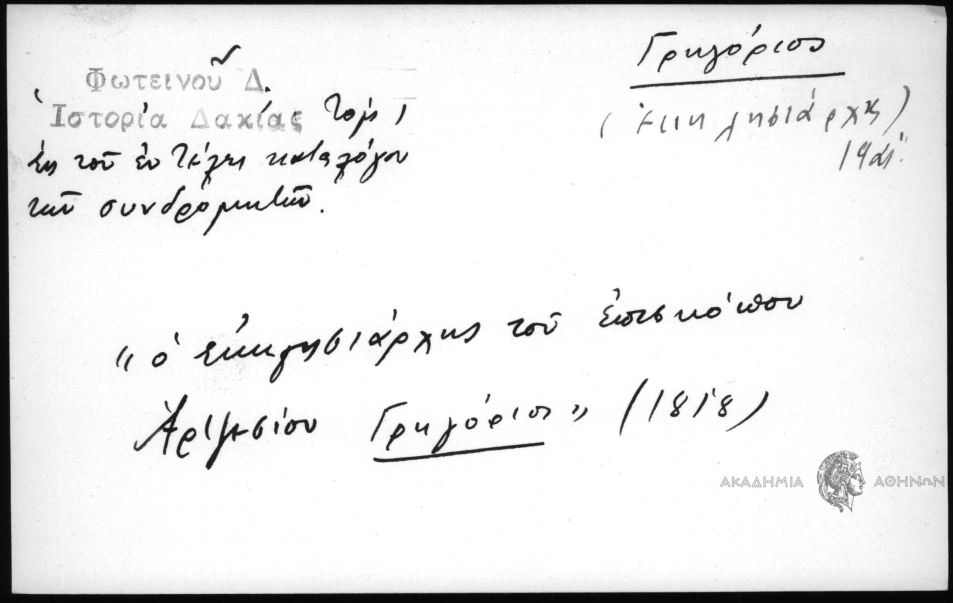 Φωτεινοῦ Δ.
Ἱστορία Δακίας Τομ 1
ἐκ τοῦ ἐν τέλει καταλόγου
τῶν συνδρομητῶν.
Γρηγόριος
(ἐκκλησιάρχης)
19αι.
"ὁ ἐκκλησιάρχης τοῦ ἐπισκόπου
Ἀρτζεσίου Γρηγόριος" (1818)
ΑΚΑΔΗΜΙΑ ΑΘΗΝΩΝ